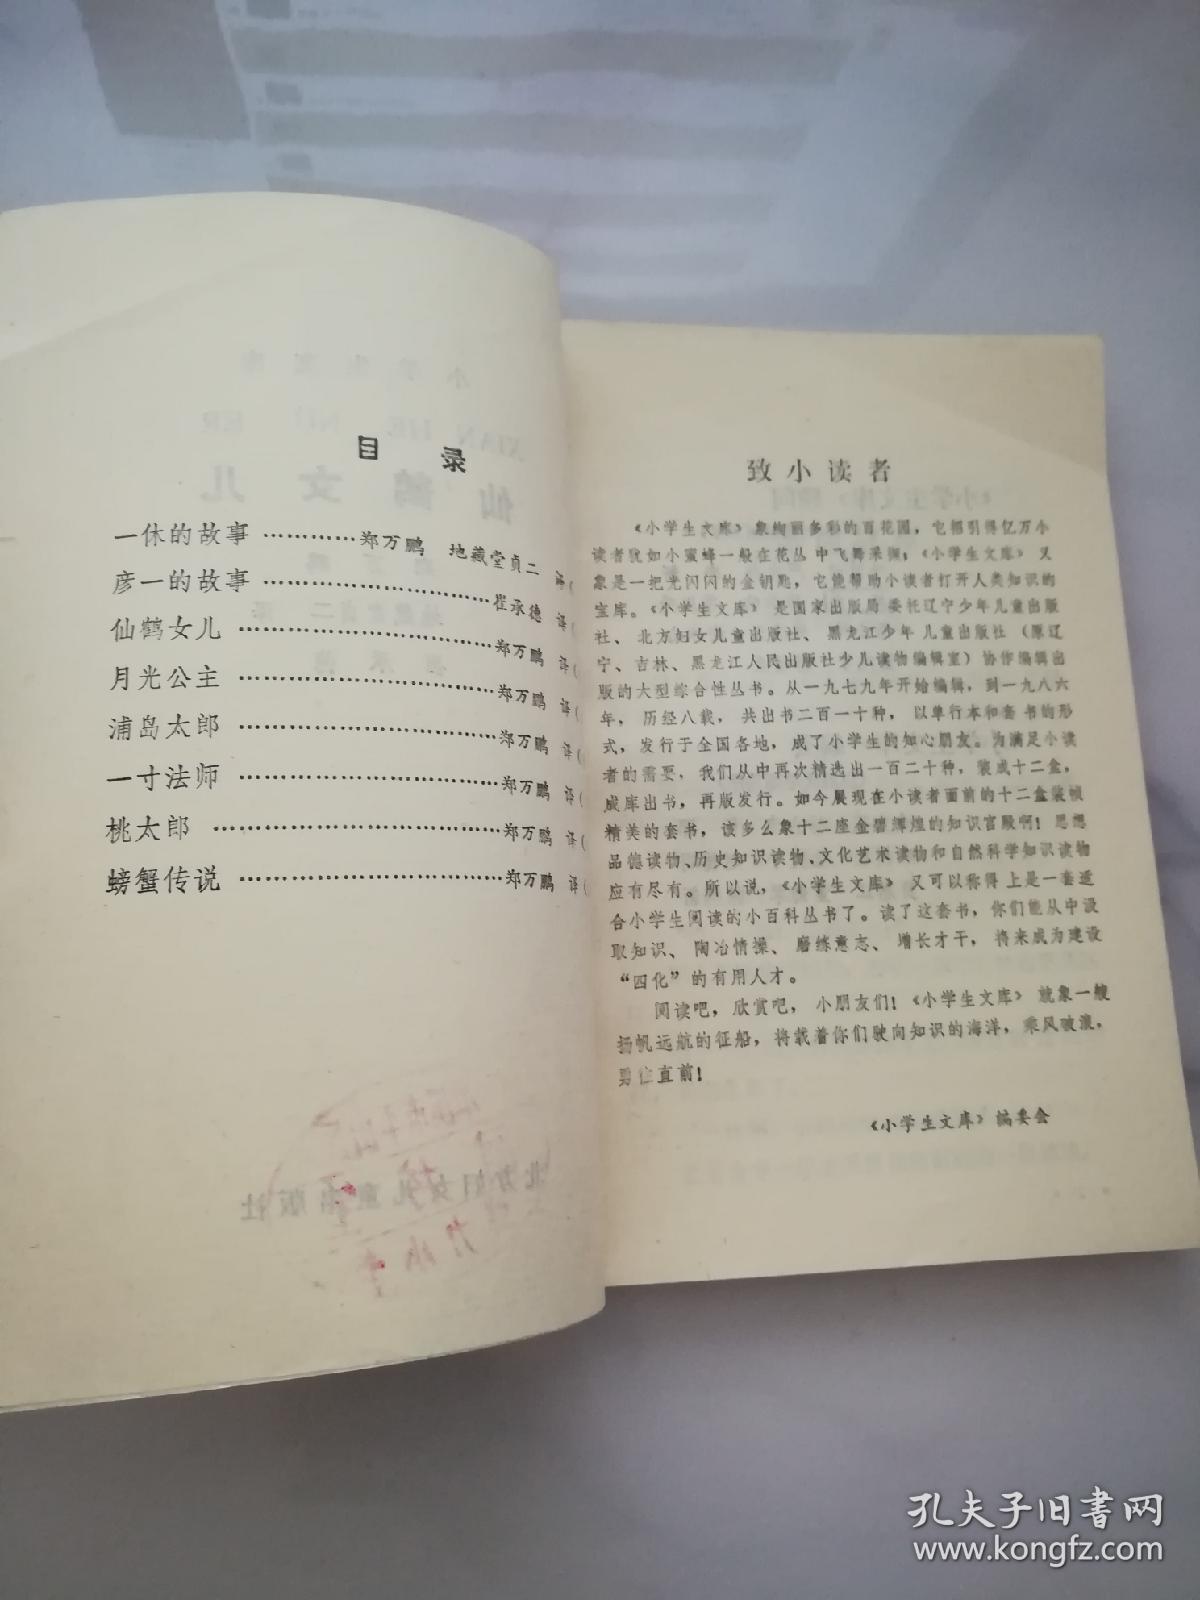 目 录
一休的故事 …………郑万鹏 地藏堂贞二 译(
彦一的故事 ……………………………崔承德 译(
仙鹤女儿 ……………………………郑万鹏 译(
月光公主 ……………………………郑万鹏 译(
浦岛太郎 ……………………………郑万鹏 译(
一寸法师 ……………………………郑万鹏 译(
桃太郎 ……………………………郑万鹏 译(
螃蟹传说 ……………………………郑万鹏 译(
致小读者
《小学生文库》象绚丽多彩的百花园，它招引得亿万小
读者犹如小蜜蜂一般在花丛中飞舞采撷；《小学生文库》又
象是一把光闪闪的金钥匙，它能帮助小读者打开人类知识的
宝库。《小学生文库》是国家出版局委托辽宁少年儿童出版
社、北方妇女儿童出版社、黑龙江少年儿童出版社（原辽
宁、吉林、黑龙江人民出版社少儿读物编辑室）协作编辑出
版的大型综合性丛书。从一九七九年开始编辑，到一九八六
年，历经八载，共出书二百一十种，以单行本和套书的形
式，发行于全国各地，成了小学生的知心朋友。为满足小读
者的需要，我们从中再次精选出一百二十种，装成十二盒，
成库出书，再版发行。如今展现在小读者面前的十二盒装帧
精美的套书，该多么象十二座金碧辉煌的知识宫殿啊！思想
品德读物、历史知识读物、文化艺术读物和自然科学知识读物
应有尽有。所以说，《小学生文库》又可以称得上是一套适
合小学生阅读的小百科丛书了。读了这套书，你们能从中汲
取知识、陶冶情操、磨练意志、增长才干，将来成为建设
“四化”的有用人才。
阅读吧，欣赏吧，小朋友们！《小学生文库》就象一艘
扬帆远航的征船，将载着你们驶向知识的海洋，乘风破浪，
勇往直前！
《小学生文库》编委会
孔夫子旧书网
www.kongfz.com